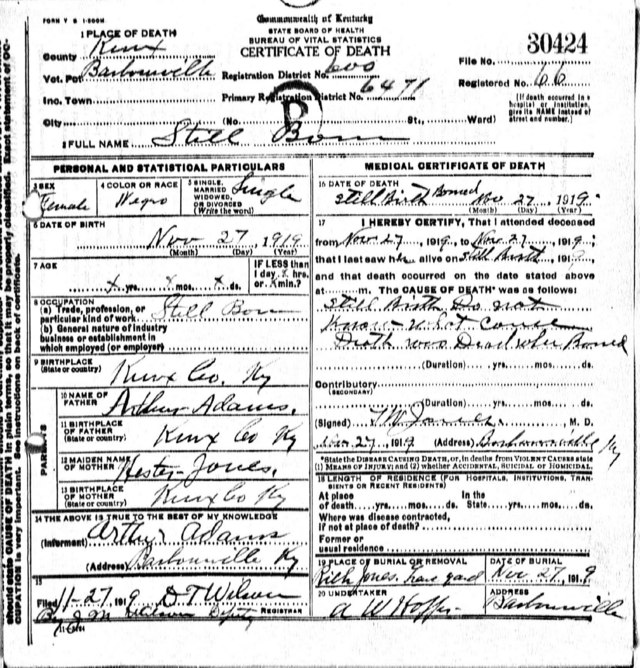 FORM V S 1-500M
Commonwealth of Kentucky
STATE BOARD OF HEALTH
BUREAU OF VITAL STATISTICS
CERTIFICATE OF DEATH
1 PLACE OF DEATH
County Knox
Vot. Pct. Barbourville
Inc. Town
City
Registration District No. 600
Primary Registration District No. 6471
(No. St., Ward)
File No. 30424
Registered No. 66
(If death occurred in a hospital or institution, give its NAME instead of street and number.)
B
2 FULL NAME Still Born
PERSONAL AND STATISTICAL PARTICULARS
3 SEX Female
4 COLOR OR RACE Negro
5 SINGLE, MARRIED WIDOWED, OR DIVORCED (Write the word) Single
6 DATE OF BIRTH
Nov 27, 1919
(Month) (Day) (Year)
7 AGE
x yrs. x mos. x ds.
IF LESS than 1 day x hrs. or x min.?
8 OCCUPATION
(a) Trade, profession, or particular kind of work Still Born
(b) General nature of industry business or establishment in which employed (or employer)
9 BIRTHPLACE
(State or country) Knox Co. Ky
PARENTS
10 NAME OF FATHER Arthur Adams,
11 BIRTHPLACE OF FATHER (State or country) Knox Co Ky
12 MAIDEN NAME OF MOTHER Hester Jones,
13 BIRTHPLACE OF MOTHER (State or country) Knox Co Ky
14 THE ABOVE IS TRUE TO THE BEST OF MY KNOWLEDGE
(Informant) Arthur Adams
(Address) Barbourville Ky
15
Filed 11-27, 1919 D T Wilson REGISTRAR
By J M Wilson Deputy
11-6184
MEDICAL CERTIFICATE OF DEATH
16 DATE OF DEATH
Still Birth Borned Nov 27, 1919
(Month) (Day) (Year)
17 I HEREBY CERTIFY, That I attended deceased
from Nov 27, 1919, to Nov 27, 1919;
that I last saw her alive on Still Birth, 191
and that death occurred on the date stated above
at m. The CAUSE OF DEATH* was as follows:
Still Birth Do not
know what cause
Death was Dead when Borned
(Duration) yrs. mos. ds.
Contributory
(SECONDARY)
(Duration) yrs. mos. ds.
(Signed) M. D.
Nov 27, 1919 (Address) Barbourville Ky
*State the DISEASE CAUSING DEATH, or, in deaths from VIOLENT CAUSES state
(1) MEANS OF INJURY; and (2) whether ACCIDENTAL, SUICIDAL OR HOMICIDAL.
18 LENGTH OF RESIDENCE (FOR HOSPITALS, INSTITUTIONS, TRANSIENTS OR RECENT RESIDENTS)
At place of death yrs. mos. ds. In the State yrs. mos. ds.
Where was disease contracted,
if not at place of death?
Former or
usual residence
19 PLACE OF BURIAL OR REMOVAL
Jones grave yard
DATE OF BURIAL
Nov 27, 1919
20 UNDERTAKER
A W Hopper
ADDRESS
Barbourville
should state CAUSE OF DEATH in plain terms, so that it may be properly classified. Exact statement of OCCUPATION is very important. See instructions on back of certificate.